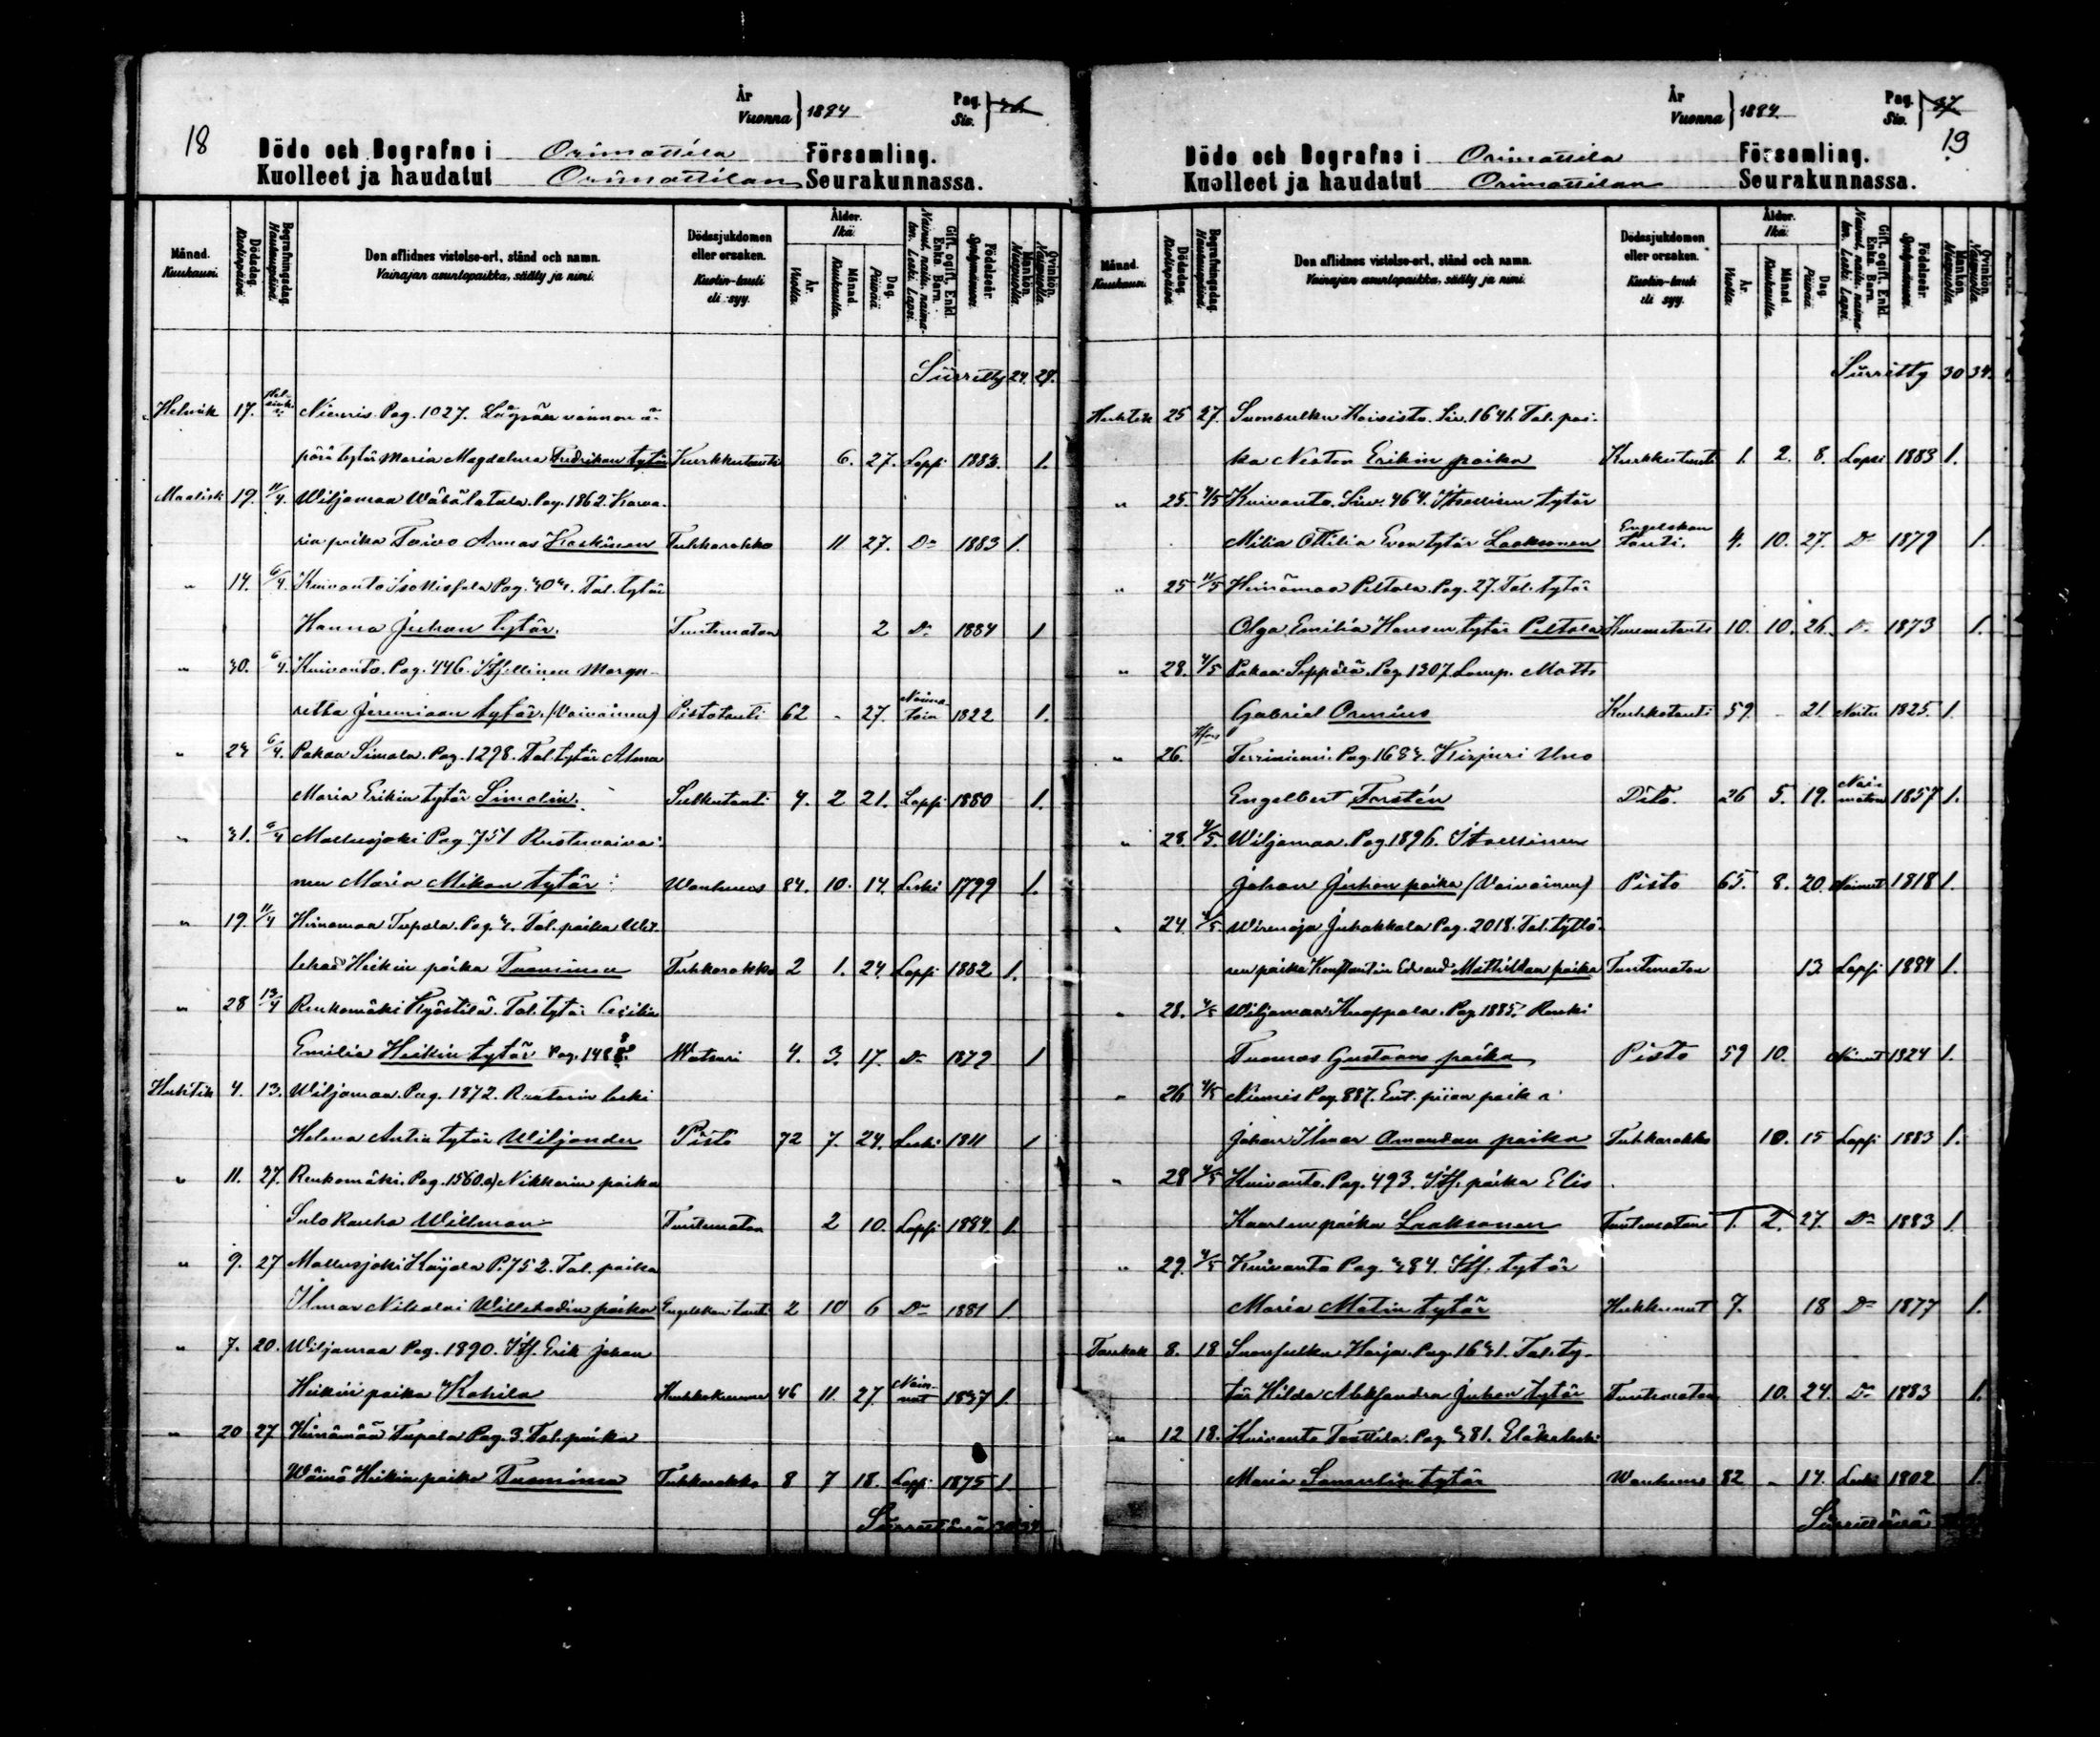 År
Vuonna } 1884
Pag.
Siv. }
18
Döde och Begrafne i Orimattila Församling.
Kuolleet ja haudatut Orimattilan Seurakunnassa.
Månad. Kuukausi. Dödsdag. Kuolinpäivä. Begrafningsdag. Hautauspäivä. Den aflidnes vistelse-ort, stånd och namn. Vainajan asuntopaikka, sääty ja nimi. Dödssjukdomen eller orsaken. Kuolin-tauti eli syy. Ålder. Ikä. År. Vuotta. Månad. Kuukautta. Dag. Päivää. Gift, ogift, Enkl. Enka. Barn. Nainut, naitu, naimaton. Leski. Lapsi. Födelseår. Syntymävuosi. Mankön. Miespuolia. Qvinkön. Naispuolia.
Siirretty 24. 29.
Helmik 17. Niemis. Pag. 1027.
tytär Maria Magdalena Fredrikan tytär Kurkkutauti 6. 27. Lapsi 1883. 1.
Maalisk 19. 11/4. Wiljamaa Wähälatala. Pag. 1862. Karva-
rin poika Toivo Armas Koskinen Tuhkarokko 11 27. Do 1883 1.
" 14. 6/4. Kuivanto Pag. 404. Tal. tytär
Hanna Juhan tytär. Tuntematon 2 Do 1884 1
" 30. 6/4. Kuivanto. Pag. 446. Itsellinen Marga-
retha Jeremiaan tytär. (Vaivainen) Pistotauti 62 - 27. Naima-
toin 1822 1.
" 24 6/4. Pakaa Simola. Pag. 1298. Tal. tytär Alma
Maria Erikin tytär Simolin. 4. 2 21. Lapsi 1880 1.
" 31. 6/4 Mallusjoki Pag. 751 Ruotuvaivai-
nen Maria Mikon tytär Wanhuus 84. 10. 14. Leski 1799 1.
" 19. 11/4 Heinämaa Tupala. Pag. 4. Tal. poika Wil-
lehad Heikin poika Tuominen Tuhkarokko 2 1. 24. Lapsi 1882 1.
" 28 13/4 Renkomäki Hyöstilä. Tal. tytär Cecilia
Emilia Heikin tytär Pag. 1488. 4. 3. 17. Do 1879 1
Huhtik 4. 13. Wiljamaa. Pag. 1872. Räätärin leski
Helena Antin tytär Wiljander Pisto 72 7. 24. Leski 1811 1
" 11. 27. Renkomäki. Pag. 1560.a) Nikkarin poika
Sulo Rauha Willman Tuntematon 2 10. Lapsi 1884. 1.
" 9. 27 Mallusjoki Köylä P. 752. Tal. poika
Ilmar Nikolai Willehadin poika Engelskan tauti 2 10 6 Do 1881 1.
" 7. 20. Wiljamaa Pag. 1890. Its. Erik Johan
Heikin poika Kohila 46 11. 27. Nai-
nut 1837 1.
" 20 27 Heinämää Tupala Pag. 3. Tal. poika
Wäinö Heikin poika Tuominen Tuhkarokko 8 7 18. Lapsi 1875 1.
Siirrettävä 30 34
År
Vuonna } 1884.
Pag.
Siv. } 37
19
Döde och Begrafne i Orimattila Församling.
Kuolleet ja haudatut Orimattilan Seurakunnassa.
Månad. Kuukausi. Dödsdag. Kuolinpäivä. Begrafningsdag. Hautauspäivä. Den aflidnes vistelse-ort, stånd och namn. Vainajan asuntopaikka, sääty ja nimi. Dödssjukdomen eller orsaken. Kuolin-tauti eli syy. Ålder. Ikä. År. Vuotta. Månad. Kuukautta. Dag. Päivää. Gift, ogift, Enkl. Enka. Barn. Nainut, naitu, naimaton. Leski. Lapsi. Födelseår. Syntymävuosi. Mankön. Miespuolia. Qvinkön. Naispuolia.
Siirretty 30 34.
Huhtik 25 27. Suonsulku Koisisto. Siv. 1641. Tal. poi-
ka Nestor Erikin poika Kurkkutauti 1. 2. 8. Lapsi 1883 1.
" 25. 4/5 Kuivanto. Siv. 464. Itsellisen tytär
Milia Ottilia Evan tytär Laaksonen Engelskan
tauti. 4. 10. 27. Do 1879 1.
" 25 11/5 Heinämaa Peltola. Pag. 27. Tal. tytär
Olga Emilia Hansin tytär Peltola 10. 10. 26. Do 1873 1.
" 28. 4/5 Pakaa Seppälä. Pag. 1307. Lamp. Matts
Gabriel Ornius Keuhkotauti 59. - 21. Naitu 1825. 1.
" 26. Terriniemi. Pag. 1684. Kirjuri Uno
Engelbert Forstén Dito. 26 5. 19. Nai-
maton 1857 1.
" 28. 4/5. Wiljamaa. Pag. 1896. Itsellinen
Johan Juhon poika (Vaivainen) Pisto 65. 8. 20. Nainut 1818 1.
" 24. 4/5. Wirenoja Juhakkala Pag. 2018. Tal. tyttä-
ren poika Konstantin Edvard Mathildan poika Tuntematon 13. Lapsi 1884 1.
" 28. 4/5 Wiljamaa Knoppala. Pag. 1885. Renki
Tuomas Gustaans poika Pisto 59 10. Nainut 1824 1.
" 26 4/5 Niemis Pag. 887. Ent. piian poika
Johan Ilmar Amandan poika Tuhkarokko 10. 15 Lapsi 1883 1.
" 28 4/5 Kuivanto. Pag. 493. Its. poika Elis
Kaarlen poika Laaksonen Tuntematon 1. 2. 27. Do 1883 1.
" 29. 4/5 Kuivanto Pag. 484. Its. tytär
Maria Matin tytär Hukkunut 7. 18 Do 1877 1.
Toukok 8. 18 Suonsulku Harja. Pag. 1641. Tal. ty-
tär Hilda Aleksandra Juhan tytär Tuntematon 10. 24. Do 1883 1.
" 12 18. Kuivanto Tanttila. Pag. 481. Eläkeleski
Maria Samuelin tytär Wanhuus 82 - 14. Leski 1802 1.
Siirrettävä